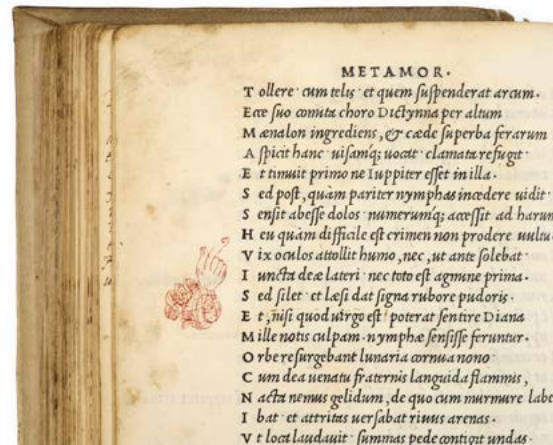 METAMOR.
T ollere cum telis et quem suſpenderat arcum.
Ecce ſuo comita choro Dictynna per altum
M ænalon ingrediens, & cæde ſuperba ferarum
A ſpicit hanc uiſamq; uocat clamata refugit
E t timuit primo ne Iuppiter eſſet in illa.
S ed poſt, quàm pariter nymphas incedere uidit
S enſit abeſſe dolos numerumq; acceſſit ad harum
H eu quàm difficile eſt crimen non prodere uultu
V ix oculos attollit humo, nec, ut ante ſolebat
I uncta deæ lateri nec toto eſt agmine prima.
S ed ſilet et læſi dat ſigna rubore pudoris.
E t, niſi quod uirgo eſt poterat ſentire Diana
M ille notis culpam. nymphæ ſenſiſſe feruntur.
O rbe reſurgebant lunaria cornua nono
C um dea uenatu fraternis languida flammis,
N acta nemus gelidum, de quo cum murmure labe
I bat et attritas uerſabat riuus arenas
V t loca laudauit ſummas pede contigit undas